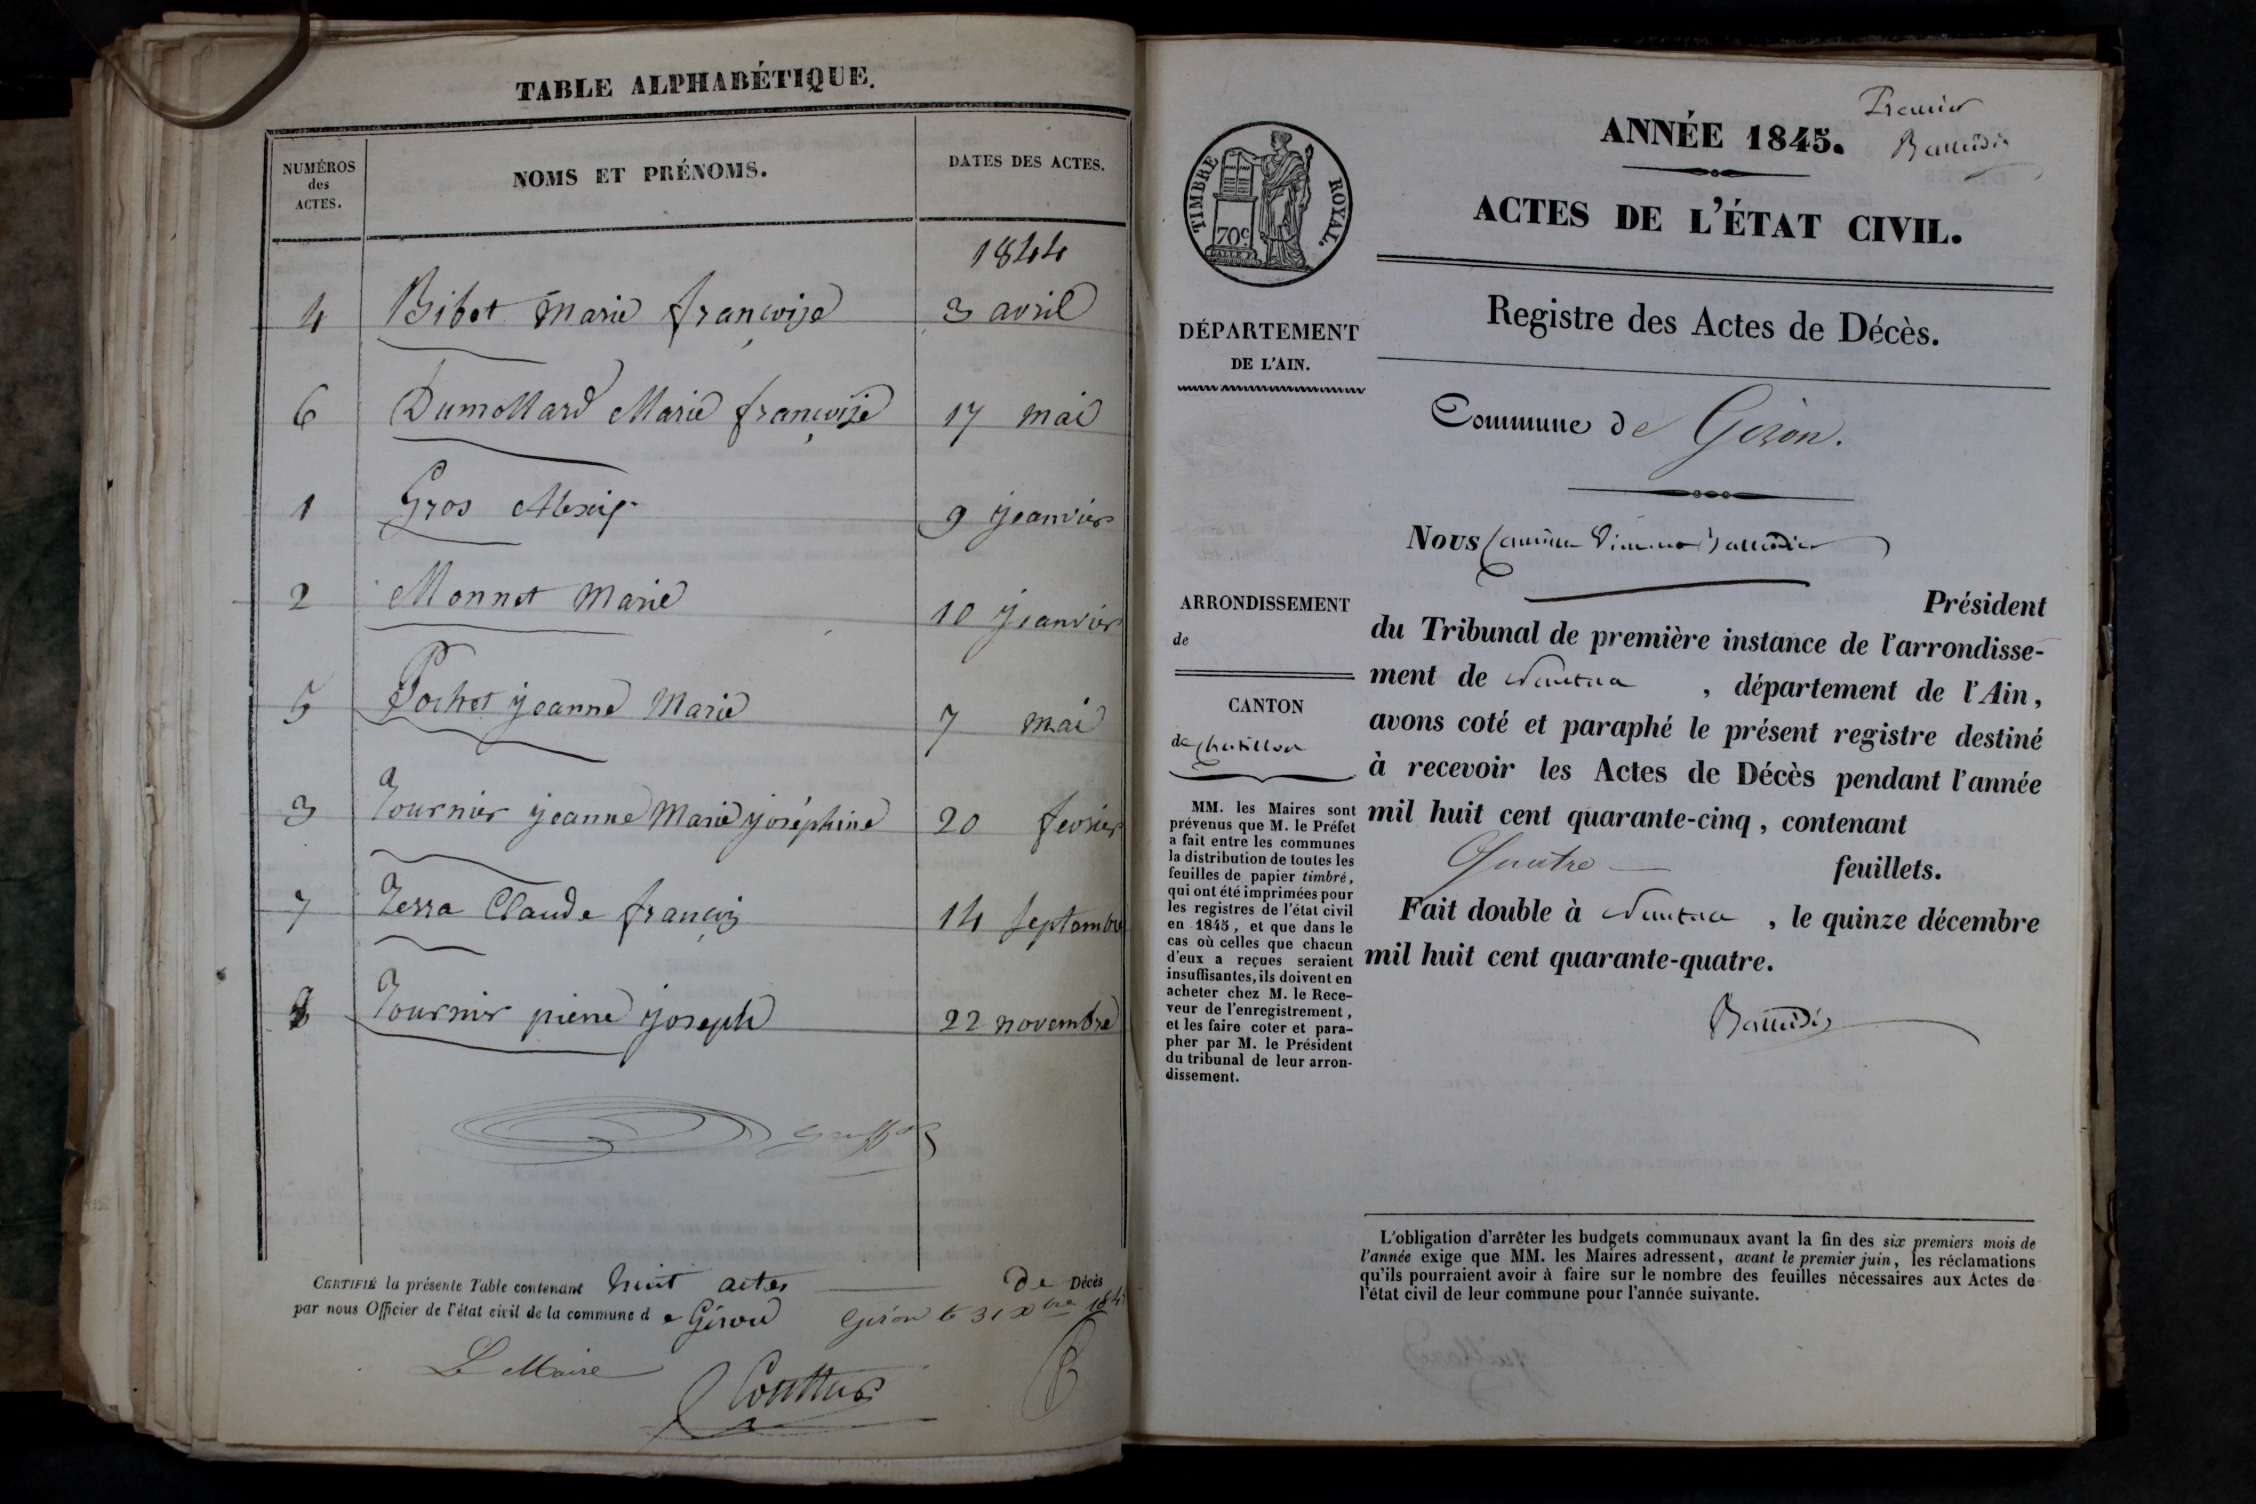 TABLE ALPHABÉTIQUE.
NUMÉROS des ACTES.
NOMS ET PRÉNOMS.
DATES DES ACTES.
1844
4 Bibet Marie françoise 3 avril
6 Dumollard Marie françoise 17 mai
1 Gros Alexis 9 jeanvier
2 Monnet Marie 10 jeanvier
5 Pochet jeanne Marie 7 mai
3 Tournier jeanne Marie joséphine 20 fevrier
7 Terra Claude françois 14 septembre
8 Tournier pierre joseph 22 novembre
CERTIFIÉ la présente Table contenant huit actes de Décès
par nous Officier de l'état civil de la commune de Giron Giron le 31 Xbre 184
Le Maire
Premier
ANNÉE 1845.
ACTES DE L'ÉTAT CIVIL.
TIMBRE ROYAL.
70c
DÉPARTEMENT
DE L'AIN.
Registre des Actes de Décès.
Commune de Giron.
Nous
ARRONDISSEMENT
de
CANTON
de chatillon
MM. les Maires sont
prévenus que M. le Préfet
a fait entre les communes
la distribution de toutes les
feuilles de papier timbré,
qui ont été imprimées pour
les registres de l'état civil
en 1845, et que dans le
cas où celles que chacun
d'eux a reçues seraient
insuffisantes, ils doivent en
acheter chez M. le Rece-
veur de l'enregistrement,
et les faire coter et para-
pher par M. le Président
du tribunal de leur arron-
dissement.
Président
du Tribunal de première instance de l'arrondisse-
ment de Nantua, département de l'Ain,
avons coté et paraphé le présent registre destiné
à recevoir les Actes de Décès pendant l'année
mil huit cent quarante-cinq, contenant
Quatre feuillets.
Fait double à Nantua, le quinze décembre
mil huit cent quarante-quatre.
L'obligation d'arrêter les budgets communaux avant la fin des six premiers mois de
l'année exige que MM. les Maires adressent, avant le premier juin, les réclamations
qu'ils pourraient avoir à faire sur le nombre des feuilles nécessaires aux Actes de
l'état civil de leur commune pour l'année suivante.